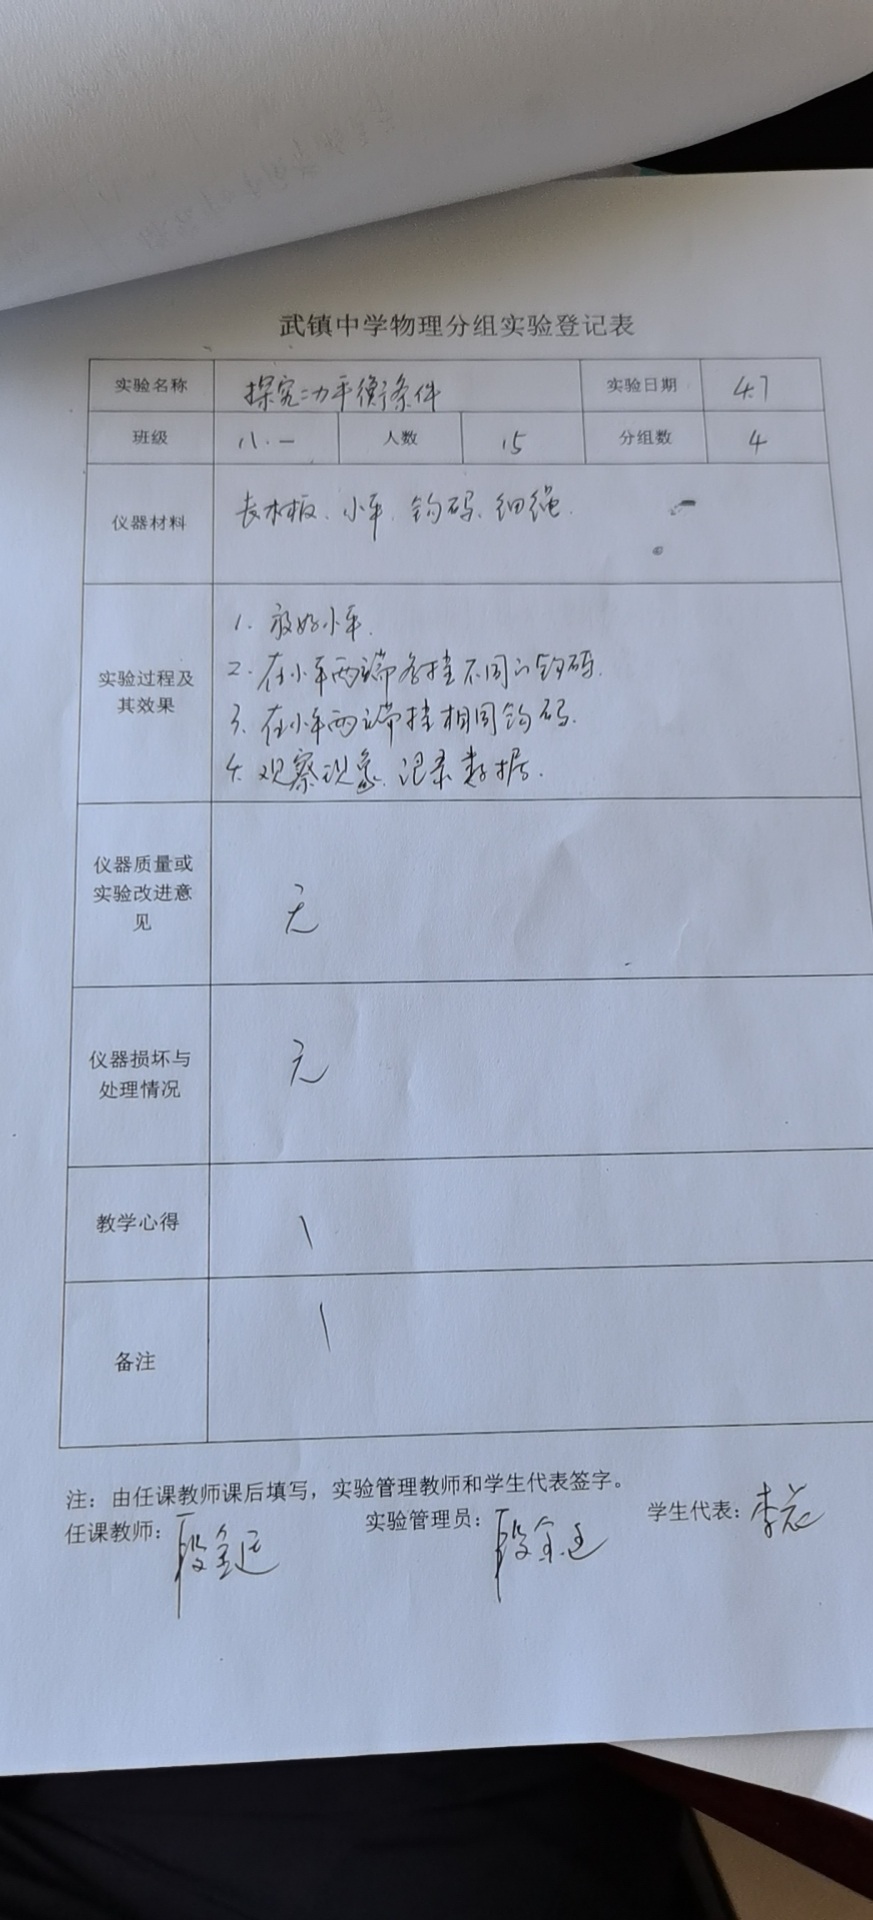 武镇中学物理分组实验登记表
实验名称 探究二力平衡条件 实验日期 4.7
班级 八.一 人数 15 分组数 4
仪器材料 长木板、小车、钩码、细绳.
实验过程及其效果
1. 放好小车.
2. 在小车两端各挂不同的钩码.
3. 在小车两端挂相同钩码.
4. 观察现象、记录数据.
仪器质量或
实验改进意
见
无
仪器损坏与
处理情况
无
教学心得 \
备注 \
注：由任课教师课后填写，实验管理教师和学生代表签字。
任课教师： 段 实验管理员： 段 学生代表：李